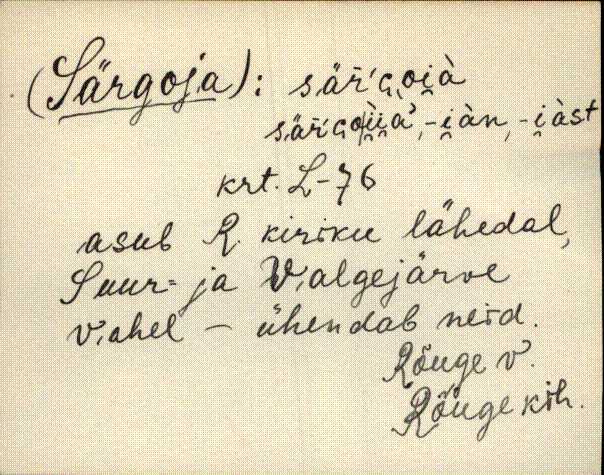 (Särgoja): sär̄'ɢ̥oi̯à
sär̄'ɢ̥oi̯i̯à', -i̯àn, -i̯àst
krt. L-76
asub R. kiriku lähedal,
Suur- ja Valgejärve
vahel – ühendab neid.
Rõuge v.
Rõuge kih.